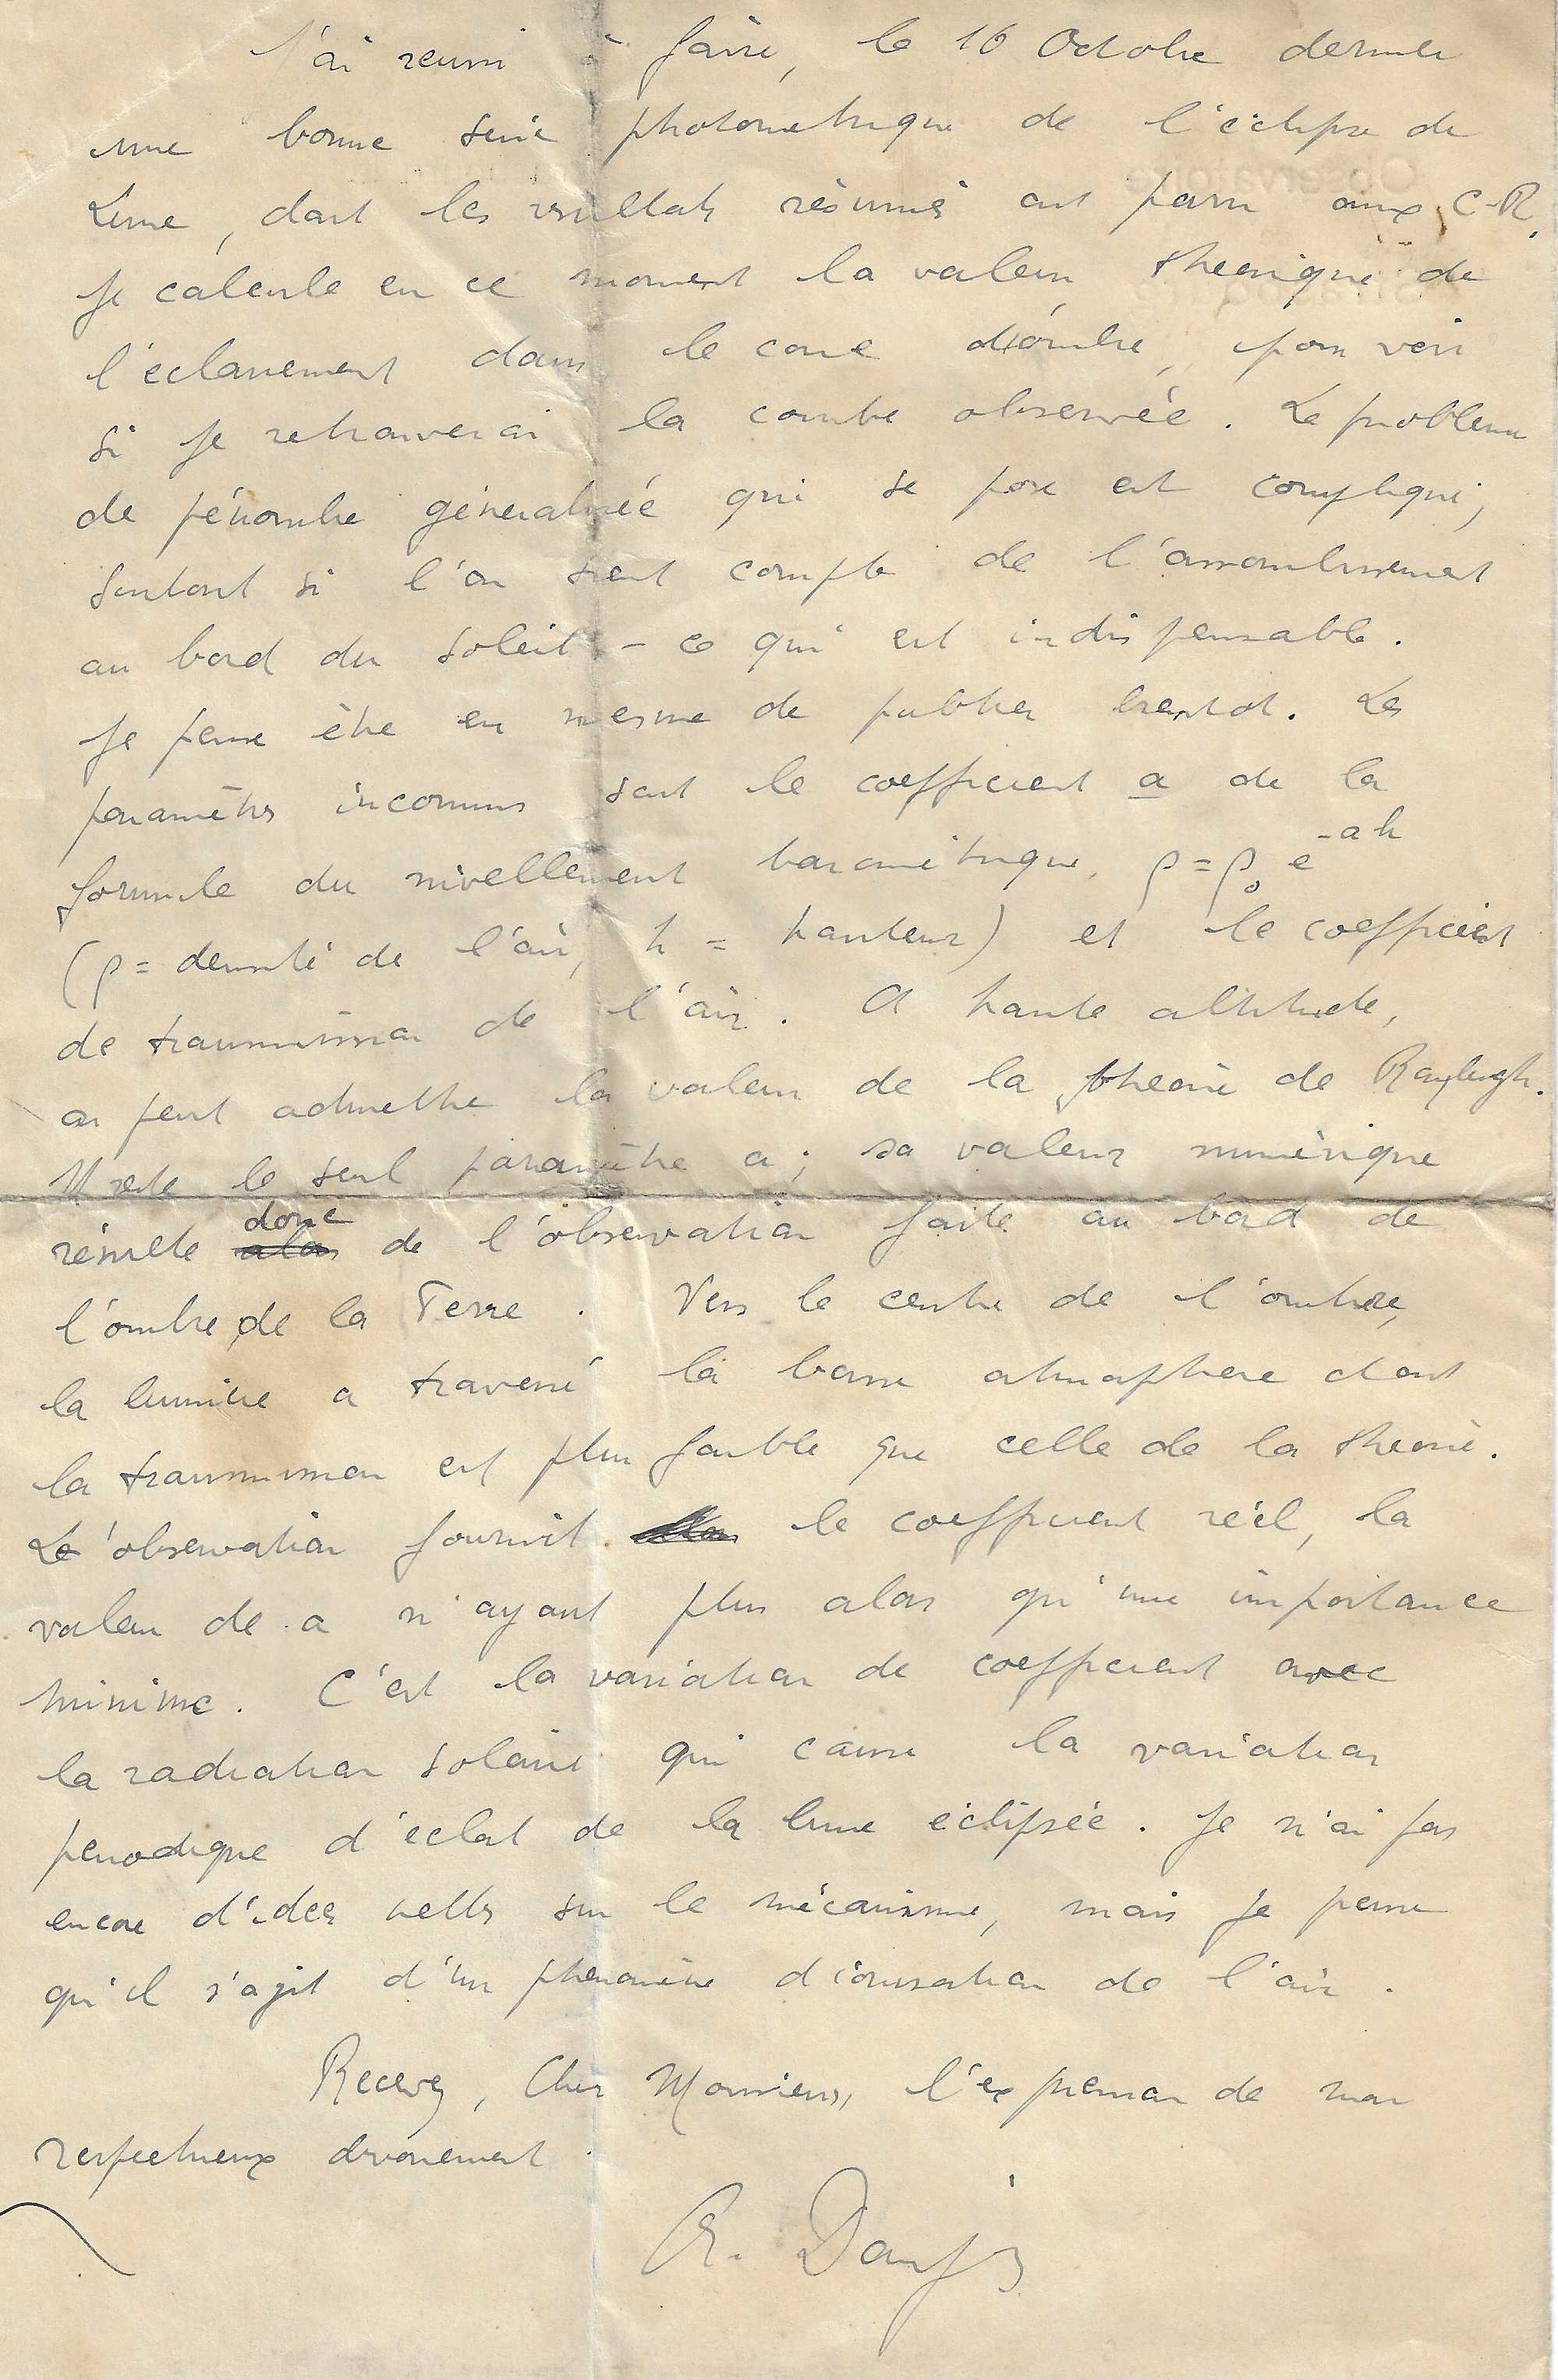 J'ai réussi à faire, le 16 Octobre dernier
une bonne série photométrique de l'éclipse de
Lune, dont les résultats résumés ont paru aux C-R.
Je calcule en ce moment la valeur théorique de
l'éclairement dans le cone d'ombre, pour voir
si je retrouverai la courbe observée. Le problème
de pénombre généralisée qui se pose est compliqué,
surtout si l'on tient compte de l'assombrissement
au bord du Soleil - ce qui est indispensable.
Je pense être en mesure de publier bientot. Les
paramètres inconnus sont le coefficient a de la
formule du nivellement barométrique, ρ = ρ₀ e^-ah
(ρ = densité de l'air, h = hauteur) et le coefficient
de transmission de l'air. A haute altitude,
on peut admettre la valeur de la théorie de Rayleigh.
Il reste le seul paramètre a ; sa valeur numérique
résulte alors donc de l'observation faite au bord de
l'ombre de la Terre. Vers le centre de l'ombre,
la lumière a traversé la basse atmosphère dont
la transmission est plus faible que celle de la théorie.
L'observation fournit le coefficient réel, la
valeur de a n'ayant plus alors qu'une importance
minime. C'est la variation de coefficient avec
la radiation solaire qui cause la variation
périodique d'éclat de la lune éclipsée. Je n'ai pas
encore d'idées nettes sur le mécanisme, mais je pense
qu'il s'agit d'un phénomène d'ionisation de l'air.
Recevez, Cher Monsieur, l'expression de mon
respectueux dévouement.
A. Danjon